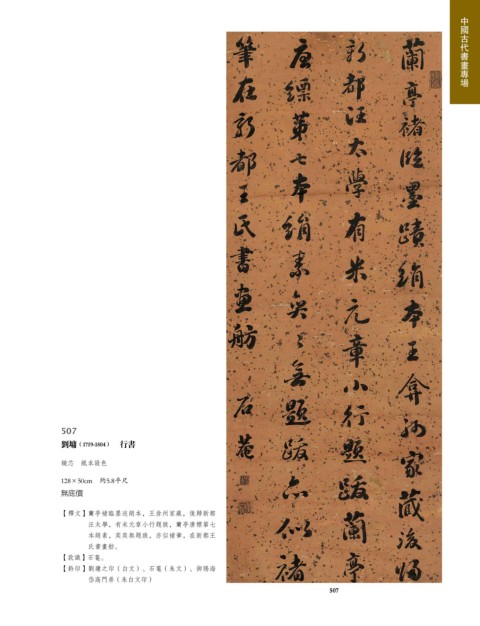 中國古代書畫專場
蘭亭褚臨墨蹟絹本王弇州家藏後歸
新都汪太學有米元章小行題跋蘭亭
唐縹第七本絹素矣矣無題跋亦似褚
筆在新都王氏書画舫
石菴
507
劉墉（1719-1804） 行書
鏡芯 紙本設色
128×50cm 約5.8平尺
無底價
【釋文】蘭亭褚臨墨迹絹本，王弇州家藏，後歸新都
汪太學，有米元章小行題跋，蘭亭唐縹第七
本絹素，奕奕無題跋，亦似褚筆，在新都王
氏書畫舫。
【款識】石菴。
【鈐印】劉墉之印（白文）、石菴（朱文）、御賜海
岱高門弟（朱白文印）
507